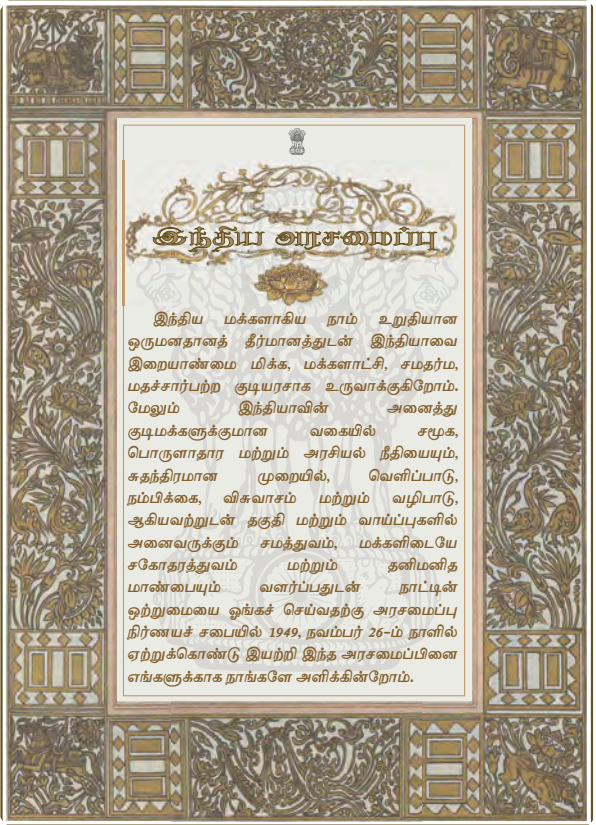 இந்திய அரசமைப்பு
இந்திய மக்களாகிய நாம் உறுதியான
ஒருமனதானத் தீர்மானத்துடன் இந்தியாவை
இறையாண்மை மிக்க, மக்களாட்சி, சமதர்ம,
மதச்சார்பற்ற குடியரசாக உருவாக்குகிறோம்.
மேலும் இந்தியாவின் அனைத்து
குடிமக்களுக்குமான வகையில் சமூக,
பொருளாதார மற்றும் அரசியல் நீதியையும்,
சுதந்திரமான முறையில், வெளிப்பாடு,
நம்பிக்கை, விசுவாசம் மற்றும் வழிபாடு,
ஆகியவற்றுடன் தகுதி மற்றும் வாய்ப்புகளில்
அனைவருக்கும் சமத்துவம், மக்களிடையே
சகோதரத்துவம் மற்றும் தனிமனித
மாண்பையும் வளர்ப்பதுடன் நாட்டின்
ஒற்றுமையை ஓங்கச் செய்வதற்கு அரசமைப்பு
நிர்ணயச் சபையில் 1949, நவம்பர் 26-ம் நாளில்
ஏற்றுக்கொண்டு இயற்றி இந்த அரசமைப்பினை
எங்களுக்காக நாங்களே அளிக்கின்றோம்.